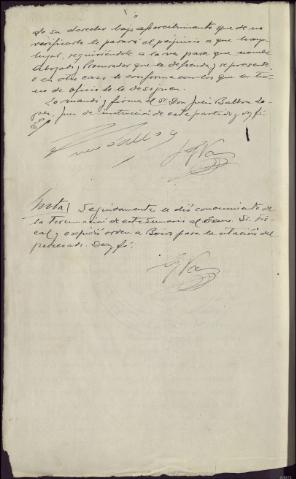 de su derecho bajo apercibimiento que de no
verificarlo le parará el perjuicio a que haya
lugar, requiriéndole a la vez para que nombre
Abogado y Procurador que le defienda y represente
o en otro caso se conforma con los que en tur-
no de oficio se le designen.
Lo manda y firma el Sr. Don Julio Balboa
Juez de instrucción de este partido, doy fé.
Nota/ Seguidamente se dió conocimiento de
la terminación de este sumario al Excmo. Sr. Fis-
cal, y expidió orden a para la citación del
procesado. Doy fé.